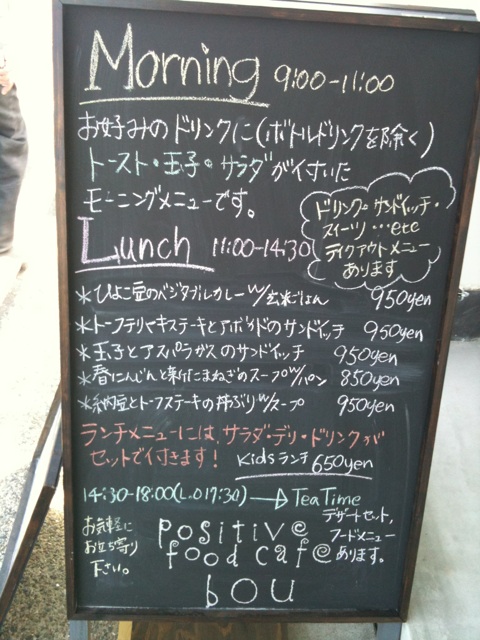 Morning 9:00-11:00
お好みのドリンクに(ボトルドリンクを除く)
トースト・玉子・サラダが付いた
モーニングメニューです。
ドリンク・サンドイッチ・
スイーツ…etc
テイクアウトメニュー
あります
Lunch 11:00-14:30
*ひよこ豆のベジタブルカレーw/玄米ごはん 950yen
*トーフテリヤキステーキとアボカドのサンドイッチ 950yen
*玉子とアスパラガスのサンドイッチ 950yen
*春にんじんと新たまねぎのスープw/パン 850yen
*納豆とトーフステーキの丼ぶりw/スープ 950yen
ランチメニューには、サラダ・デリ・ドリンクが
セットで付きます!
Kidsランチ 650yen
14:30-18:00(L.O17:30)→Tea Time
デザートセット,
フードメニュー
あります。
お気軽に
お立ち寄り
下さい。
positive
food cafe
bou